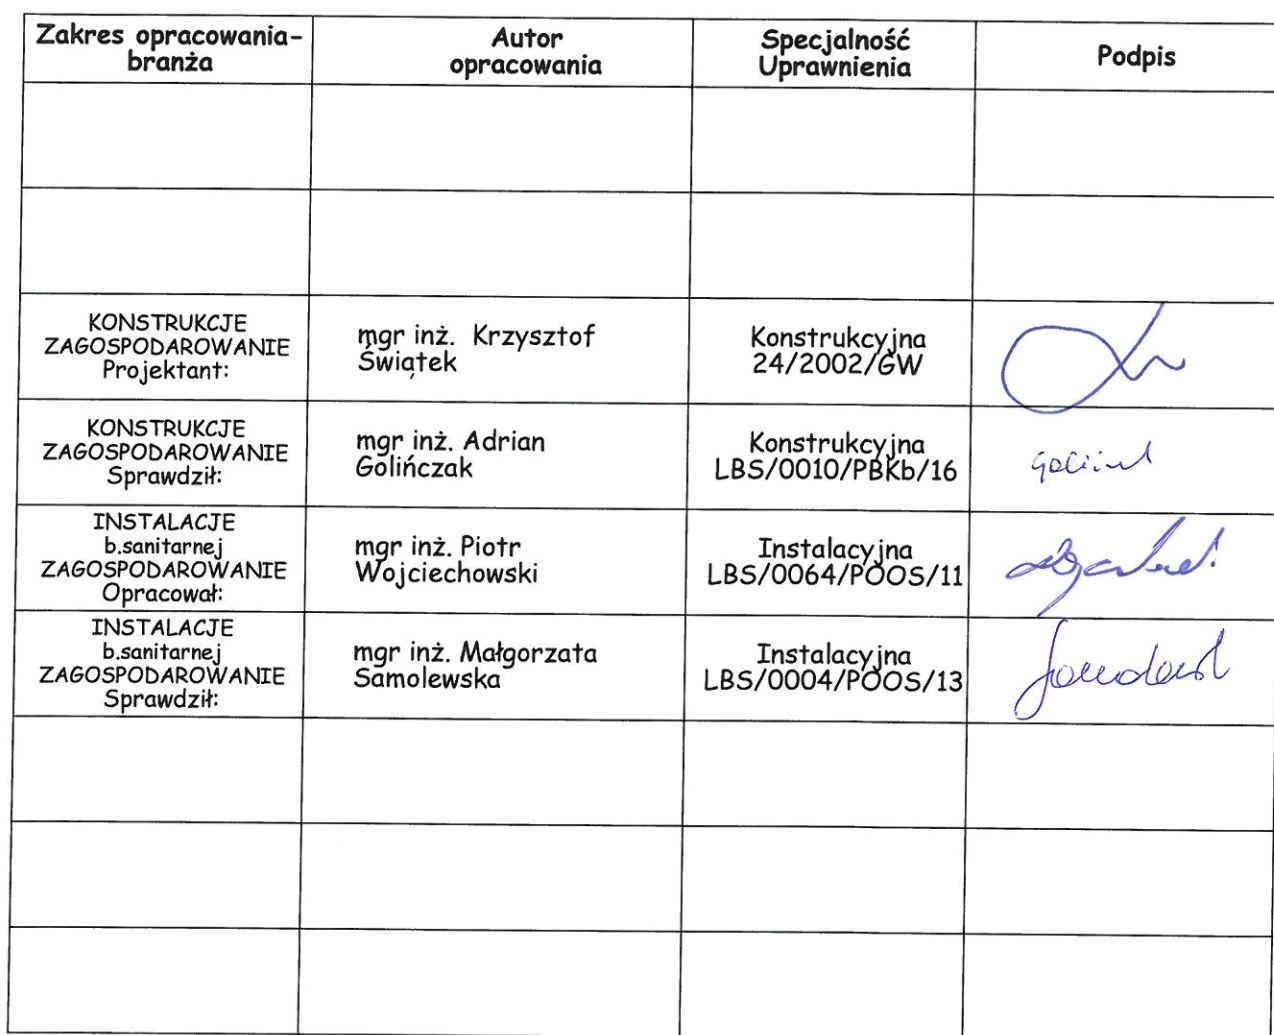 Zakres opracowania-
branża
Autor
opracowania
Specjalność
Uprawnienia
Podpis
KONSTRUKCJE
ZAGOSPODAROWANIE
Projektant:
mgr inż. Krzysztof
Świątek
Konstrukcyjna
24/2002/GW
KONSTRUKCJE
ZAGOSPODAROWANIE
Sprawdził:
mgr inż. Adrian
Golińczak
Konstrukcyjna
LBS/0010/PBKb/16
INSTALACJE
b.sanitarnej
ZAGOSPODAROWANIE
Opracował:
mgr inż. Piotr
Wojciechowski
Instalacyjna
LBS/0064/POOS/11
INSTALACJE
b.sanitarnej
ZAGOSPODAROWANIE
Sprawdził:
mgr inż. Małgorzata
Samolewska
Instalacyjna
LBS/0004/POOS/13